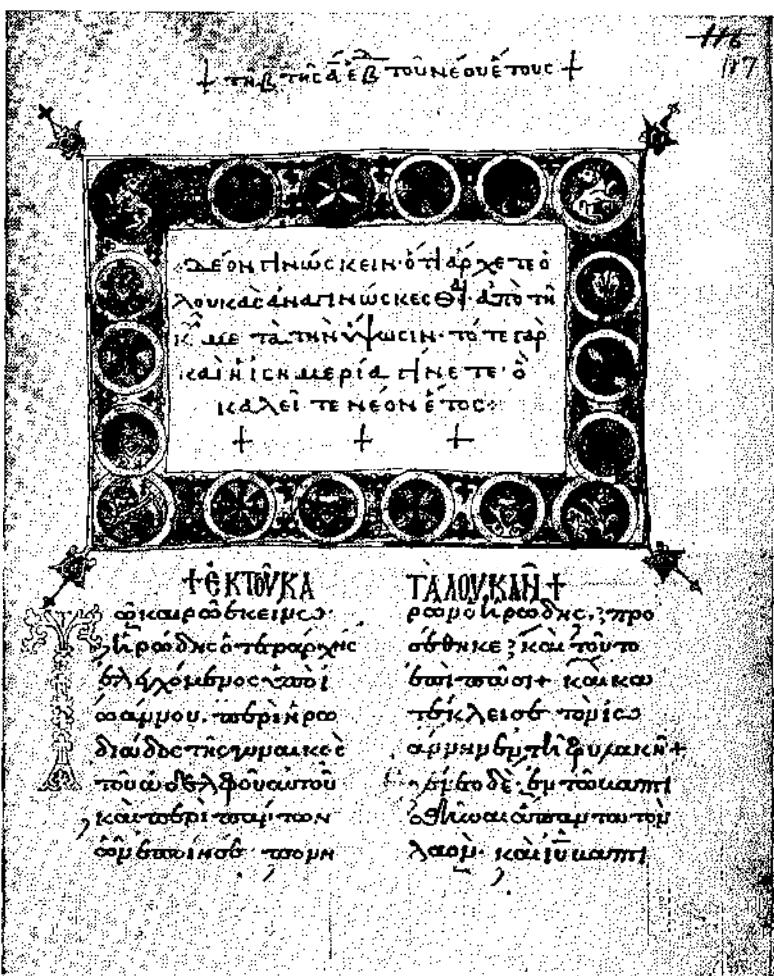 116
117
+ τῆ β τῆς α ἑβ τοῦ νέου ἔτους +
Δέον γινώσκειν· ὅτι ἄρχετε ὁ
λουκᾶς ἀναγινώσκεσθαι· ἀπὸ τῆ
κ̅ μετὰ τὴν ὕψωσιν· τό τε γὰρ
καὶ ἡ ἰσημερία γίνετε· ὃ
καλεῖ τε νέον ἔτος:
+ + +
+ ἐκ τοῦ κα
τὰ λουκᾶν +
Τῶ καιρῶ ἐκείνω·
ἡρώδης ὁ τετράρχης
ἐλεγχόμενος ὑπὸ ἰ
ωάννου. περὶ ἡρω
διάδος τῆς γυναικὸς
τοῦ ἀδελφοῦ αὐτοῦ
καὶ περὶ πάντων
ὧν ἐποίησε πονη
ρῶν ὁ ἡρώδης, προ
σέθηκε καὶ τοῦτο
ἐπὶ πᾶσι + καὶ κα
τέκλεισε τὸν ἰω
άννην ἐν τῆ φυλακῆ +
ἐγένετο δὲ ἐν τῶ βαπτι
σθῆναι ἅπαντα τὸν
λαὸν· καὶ ἰ̅υ̅ βαπτι